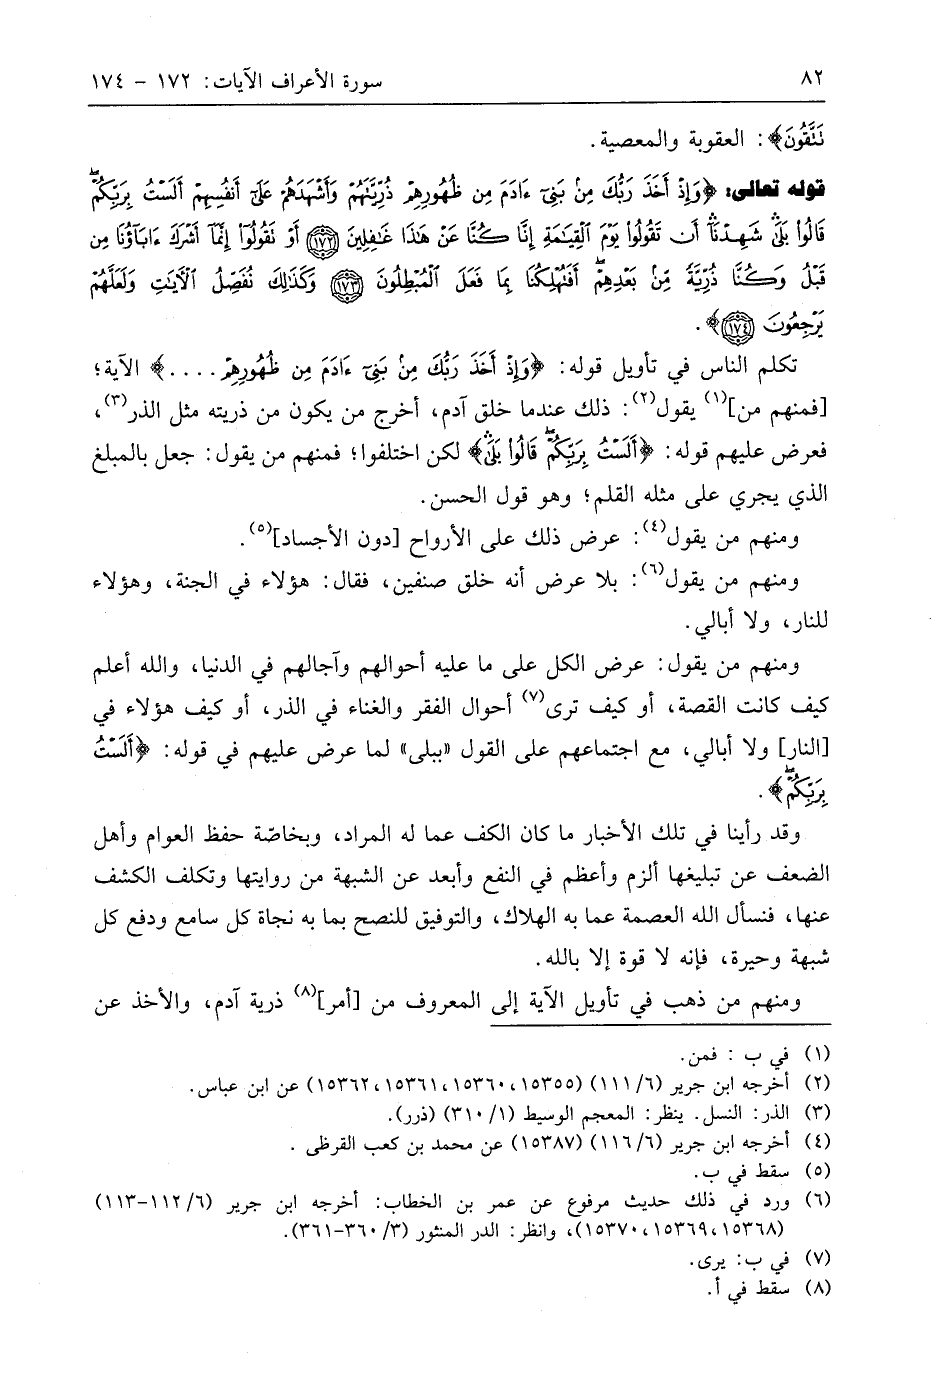 ٨٢ سورة الأعراف الآيات: ١٧٢ - ١٧٤
نَتَّقُونَ﴾: العقوبة والمعصية.
قوله تعالى: ﴿وَإِذْ أَخَذَ رَبُّكَ مِنْ بَنِىٓ ءَادَمَ مِن ظُهُورِهِمْ ذُرِّيَّتَهُمْ وَأَشْهَدَهُمْ عَلَىٰٓ أَنفُسِهِمْ أَلَسْتُ بِرَبِّكُمْۖ
قَالُوا۟ بَلَىٰۛ شَهِدْنَآۛ أَن تَقُولُوا۟ يَوْمَ ٱلْقِيَٰمَةِ إِنَّا كُنَّا عَنْ هَٰذَا غَٰفِلِينَ ﴿١٧٢﴾ أَوْ نَقُولُوٓا۟ إِنَّمَآ أَشْرَكَ ءَابَآؤُنَا مِن
قَبْلُ وَكُنَّا ذُرِّيَّةً مِّنۢ بَعْدِهِمْۖ أَفَتُهْلِكُنَا بِمَا فَعَلَ ٱلْمُبْطِلُونَ ﴿١٧٣﴾ وَكَذَٰلِكَ نُفَصِّلُ ٱلْـَٔايَٰتِ وَلَعَلَّهُمْ
يَرْجِعُونَ ﴿١٧٤﴾﴾.
تكلم الناس في تأويل قوله: ﴿وَإِذْ أَخَذَ رَبُّكَ مِنۢ بَنِىٓ ءَادَمَ مِن ظُهُورِهِمْ....﴾ الآية؛
[فمنهم من](١) يقول(٢): ذلك عندما خلق آدم، أخرج من يكون من ذريته مثل الذر(٣)،
فعرض عليهم قوله: ﴿أَلَسْتُ بِرَبِّكُمْۖ قَالُوا۟ بَلَىٰۛ﴾ لكن اختلفوا؛ فمنهم من يقول: جعل بالمبلغ
الذي يجري على مثله القلم؛ وهو قول الحسن.
ومنهم من يقول(٤): عرض ذلك على الأرواح [دون الأجساد](٥).
ومنهم من يقول(٦): بلا عرض أنه خلق صنفين، فقال: هؤلاء في الجنة، وهؤلاء
للنار، ولا أبالي.
ومنهم من يقول: عرض الكل على ما عليه أحوالهم وآجالهم في الدنيا، والله أعلم
كيف كانت القصة، أو كيف ترى(٧) أحوال الفقر والغناء في الذر، أو كيف هؤلاء في
[النار] ولا أبالي، مع اجتماعهم على القول «ببلى» لما عرض عليهم في قوله: ﴿أَلَسْتُ
بِرَبِّكُمْۖ﴾.
وقد رأينا في تلك الأخبار ما كان الكف عما له المراد، وبخاصّة حفظ العوام وأهل
الضعف عن تبليغها ألزم وأعظم في النفع وأبعد عن الشبهة من روايتها وتكلف الكشف
عنها، فنسأل الله العصمة عما به الهلاك، والتوفيق للنصح بما به نجاة كل سامع ودفع كل
شبهة وحيرة، فإنه لا قوة إلا بالله.
ومنهم من ذهب في تأويل الآية إلى المعروف من [أمر](٨) ذرية آدم، والأخذ عن
(١) في ب : فمن.
(٢) أخرجه ابن جرير (٦/ ١١١) (١٥٣٥٥، ١٥٣٦٠، ١٥٣٦١، ١٥٣٦٢) عن ابن عباس.
(٣) الذر: النسل. ينظر: المعجم الوسيط (١/ ٣١٠) (ذرر).
(٤) أخرجه ابن جرير (٦/ ١١٦) (١٥٣٨٧) عن محمد بن كعب القرظى .
(٥) سقط في ب.
(٦) ورد في ذلك حديث مرفوع عن عمر بن الخطاب: أخرجه ابن جرير (٦/ ١١٢-١١٣)
(١٥٣٦٨، ١٥٣٦٩، ١٥٣٧٠)، وانظر: الدر المنثور (٣/ ٣٦٠-٣٦١).
(٧) في ب: يرى.
(٨) سقط في أ.